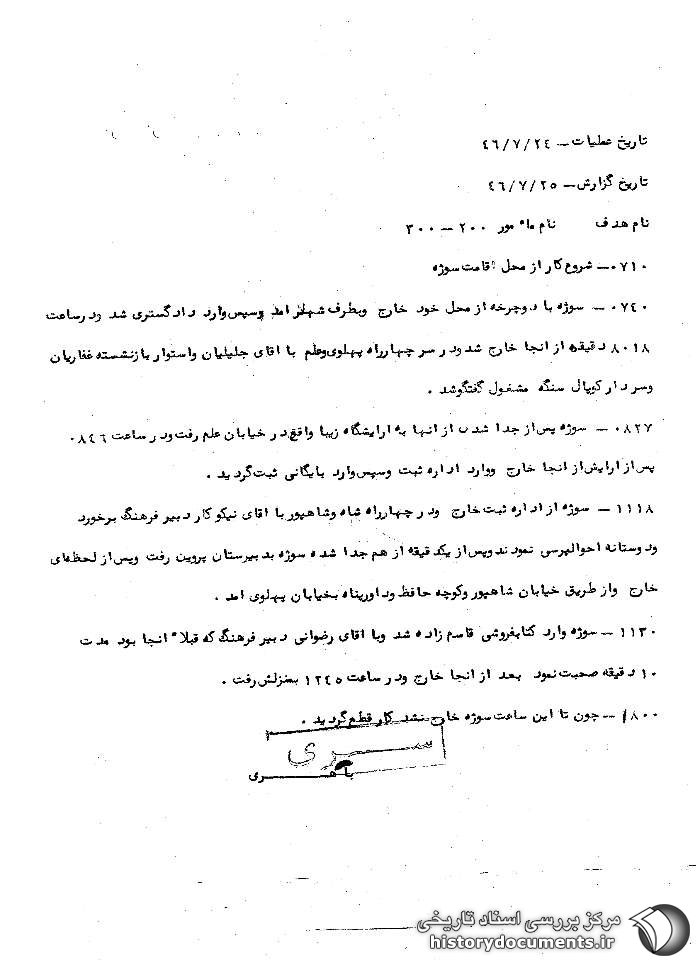 تاریخ عملیات ــ ٤٦/٧/٢٤
تاریخ گزارش ــ ٤٦/٧/٢٥
نام هدف نام مأمور ٢٠٠ ــ ٣٠٠
٠٧١٠ ــ شروع کار از محل اقامت سوژه
٠٧٤٠ ــ سوژه با دوچرخه از محل خود خارج وبطرف شهر امد وسپس وارد دادگستری شد ودرساعت
٨٠١٨ دقیقه از انجا خارج شد ودر سر چهارراه پهلوی وعلم با اقای جلیلیان واستوار بازنشسته غفاریان
وسردار کوپال سنگه مشغول گفتگوشد .
٠٨٢٧ ــ سوژه پس از جدا شدن از انها به ارایشگاه زیبا واقع در خیابان علم رفت ودر ساعت ٠٨٤٦
پس از ارایش از انجا خارج ووارد اداره ثبت وسپس وارد بایگانی ثبت گردید .
١١١٨ ــ سوژه از اداره ثبت خارج ودر چهارراه شاه وشاهپور با اقای نیکو کار دبیر فرهنگ برخورد
ودوستانه احوالپرسی نمودند وپس از یکدقیقه از هم جدا شده سوژه بدبیرستان پروین رفت وپس از لحظه‌ای
خارج واز طریق خیابان شاهپور وکوچه حافظ وداورپناه بخیابان پهلوی امد .
١١٣٠ ــ سوژه وارد کتابفروشی قاسم زاده شد وبا اقای رضوانی دبیر فرهنگ که قبلاً انجا بود مدت
١٠ دقیقه صحبت نمود بعد از انجا خارج ودر ساعت ١٢٤٥ بمنزلش رفت .
١٨٠٠ ــ چون تا این ساعت سوژه خارج نشد کار قطع گردید .
سری
مرکز بررسی اسناد تاریخی
historydocuments.ir